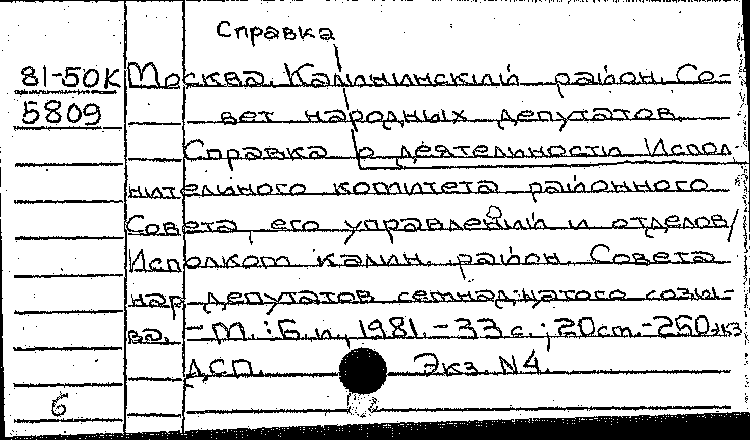 Справка
81-50К Москва. Калининский район. Со-
5809 вет народных депутатов.
Справка о деятельности Испол-
нительного комитета районного
Совета, его управлений и отделов/
Исполком калин. район. Совета
нар. депутатов семнадцатого созы-
ва. - М. : Б. и., 1981. - 33 с. ; 20 см. - 250 экз
ДСП. Экз. N4.
6